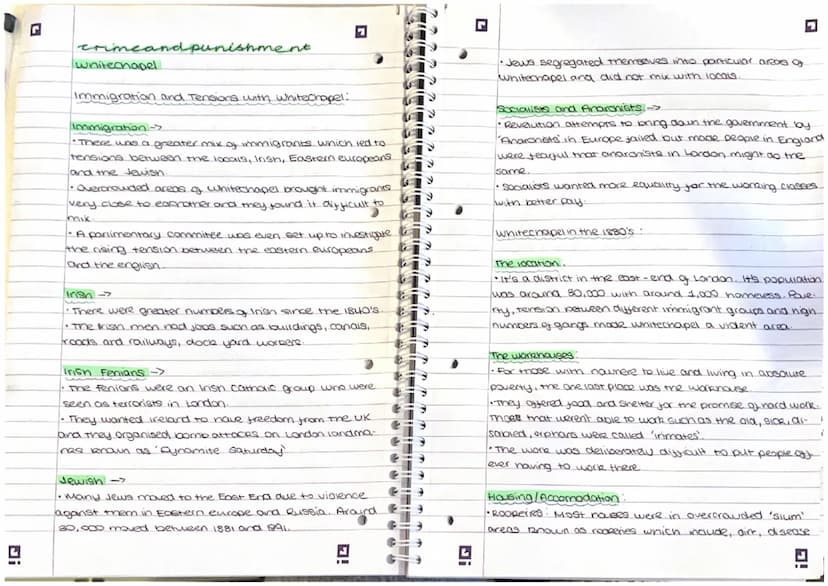 crimeandpunishment
Whitechapel
Immigration and Tensions with Whitechapel:
Immigration →
• There was a greater mix of immigrants which led to
tensions between the locals, Irish, Eastern europeans
and the Jewish
• Overcrowded areas of Whitechapel brought immigrants
very close to eachother and they found it difficult to
mix
• A parlimentary commitee was even set up to investigate
the rising tension between the eastern europeans
and the english.
Irish →
• There were greater numbers of Irish since the 1840's
• The Irish men had jobs such as buildings, canals,
roads and railways, dock yard workers.
Irish Fenians →
• The fenians were an Irish Catholic group who were
seen as terrorists in London.
• They wanted ireland to have freedom from the UK
and they organised bomb attacks on London landma-
rks known as 'Dynamite Saturday'
Jewish →
• Many Jews moved to the East End due to violence
against them in Eastern europe and Russia. Around
30,000 moved between 1881 and 1891.
• Jews segregated themselves into particular areas of
Whitechapel and did not mix with locals.
Socialists and Anarchists →
• Revolution attempts to bring down the government by
'Anarchists' in Europe failed but made people in England
were fearful that anarchists in London might do the
same.
• Socialists wanted more equality for the working classes
with better pay.
Whitechapel in the 1880's:
The location.
• It's a district in the east-end of London. It's population
was around 30,000 with around 1,000 homeless. Pove-
rty, tension between different immigrant groups and high
numbers of gangs made whitechapel a violent area.
The workhouses
• For those with nowhere to live and living in absolute
poverty, the one last place was the workhouse
• They offered food and shelter for the promise of hard work.
Those that weren't able to work such as the old, sick, di-
sabled, orphans were called 'inmates'.
• The work was deliberately difficult to put people off
ever having to work there
Housing/Accomodation:
• ROOKERIES: Most houses were in overcrowded 'slum'
areas known as rookeries which include, dirt, disease